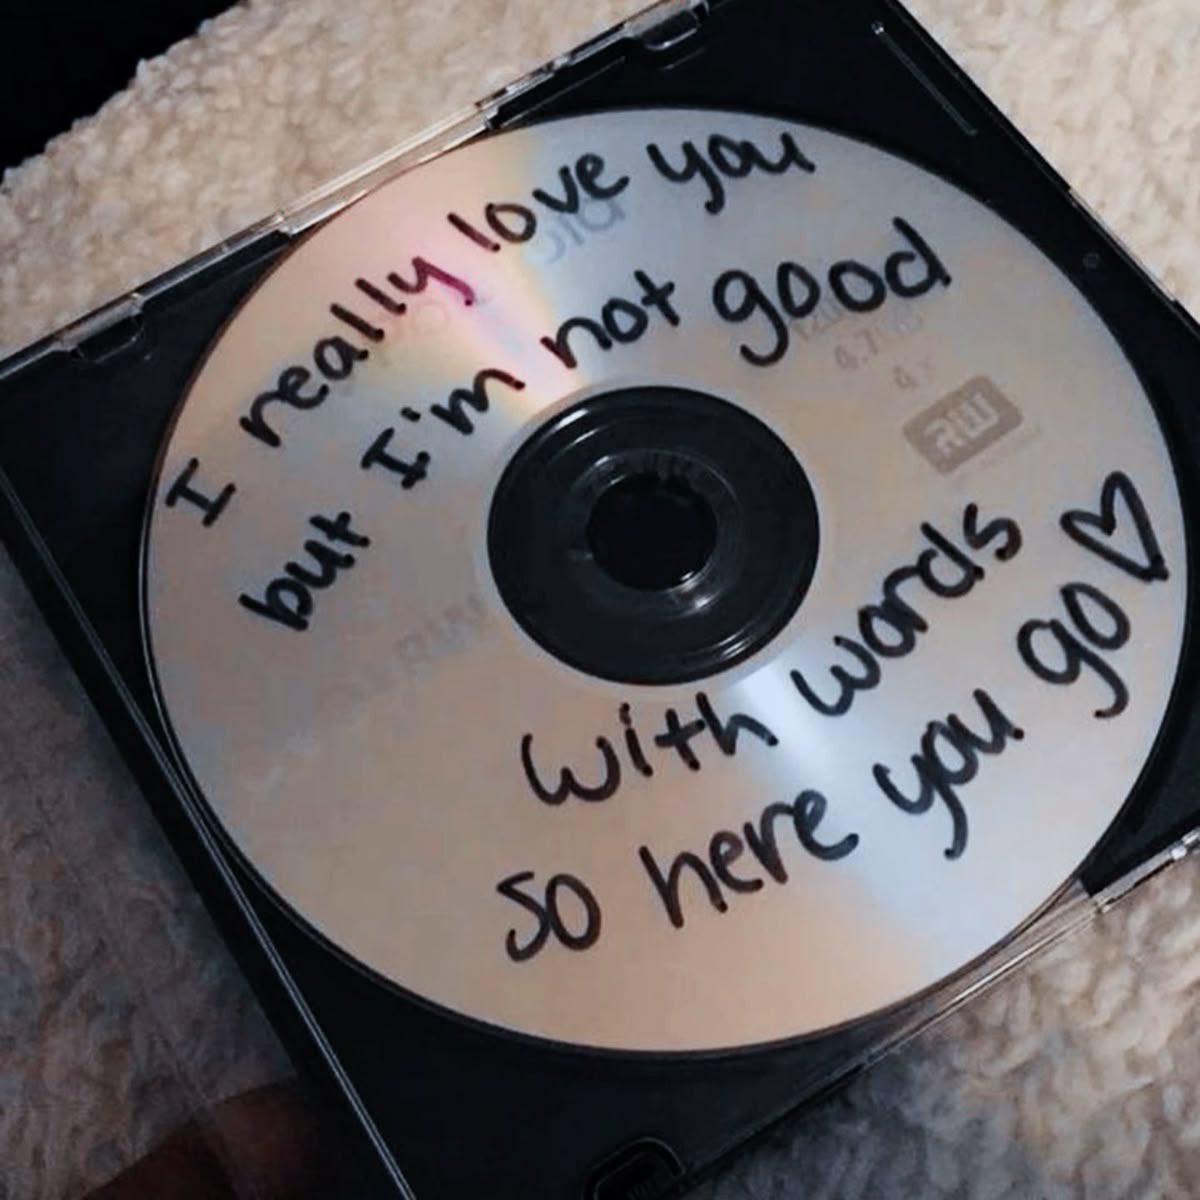 I really love you
but I'm not good
with words
so here you go♡
4.7
RW